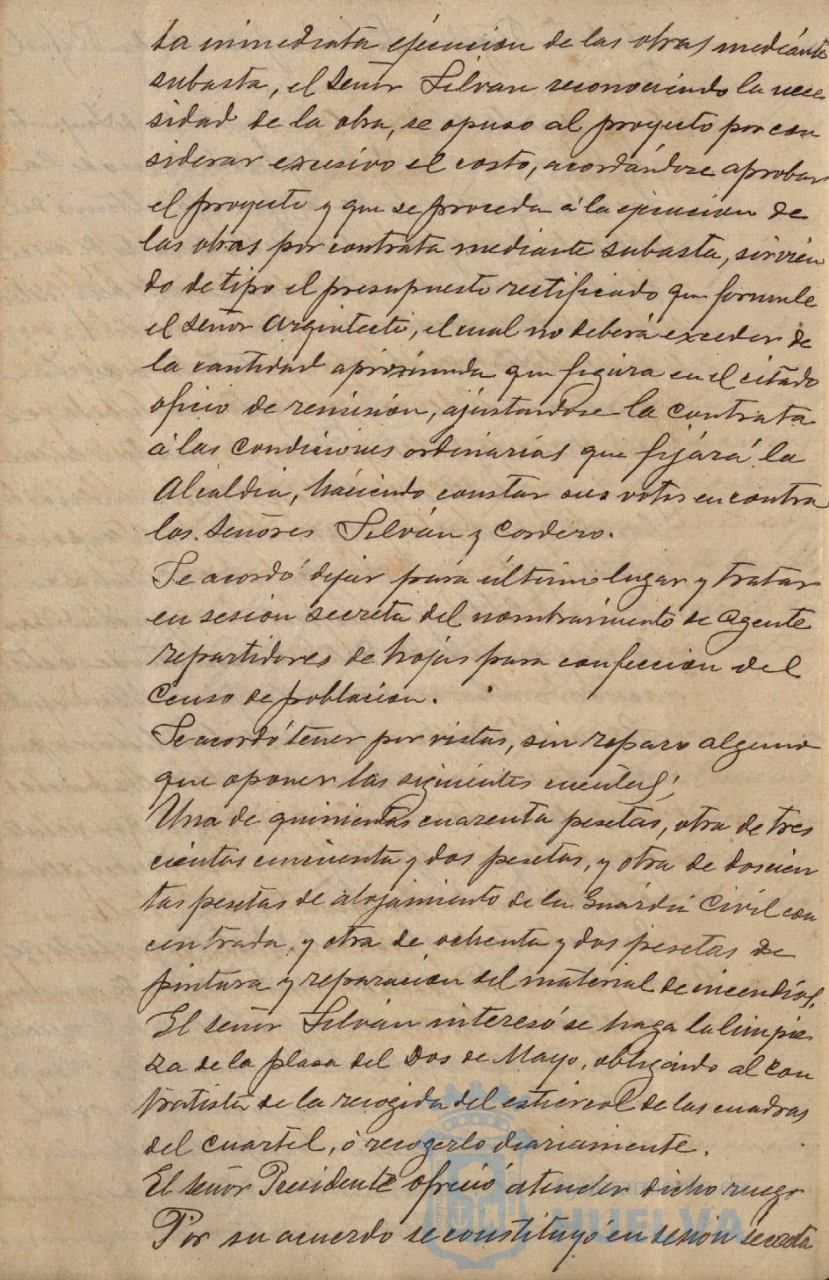 la inmediata ejecucion de las obras mediante
subasta, el señor Silvan reconociendo la nece
sidad de la obra, se opuso al proyecto por con
siderar excesivo el costo, acordándose aprobar
el proyecto y que se proceda á la ejecucion de
las obras por contrata mediante subasta, sirvien
do de tipo el presupuesto rectificado que formule
el señor Arquitecto, el cual no deberá exceder de
la cantidad aproximada que figura en el citado
oficio de remisión, ajustandose la contrata
á las condiciones ordinarias que fijará la
Alcaldia, haciendo constar sus votos en contra
los señores Silván y Cordero.
Se acordó dejar para último lugar y tratar
en sesion secreta del nombramiento de Agente
repartidores de hojas para confeccion del
Censo de poblacion.
Se acordó tener por vistas, sin reparo alguno
que oponer las siguientes cuentas;
Una de quinientas cuarenta pesetas, otra de tres
cientas cincuenta y dos pesetas, y otra de doscien
tas pesetas de alojamiento de la Guardia Civil con
centrada, y otra de ochenta y dos pesetas de
pintura y reparacion del material de incendios.
El señor Silván interesó se haga la limpie
za de la plasa del Dos de Mayo, obligando al con
tratista de la recogida del estiercol de las cuadras
del cuartel, á recogerlo diariamente.
El señor Presidente ofreció atender dicho ruego
Por su acuerdo se constituyó en sesion secreta
HUELVA